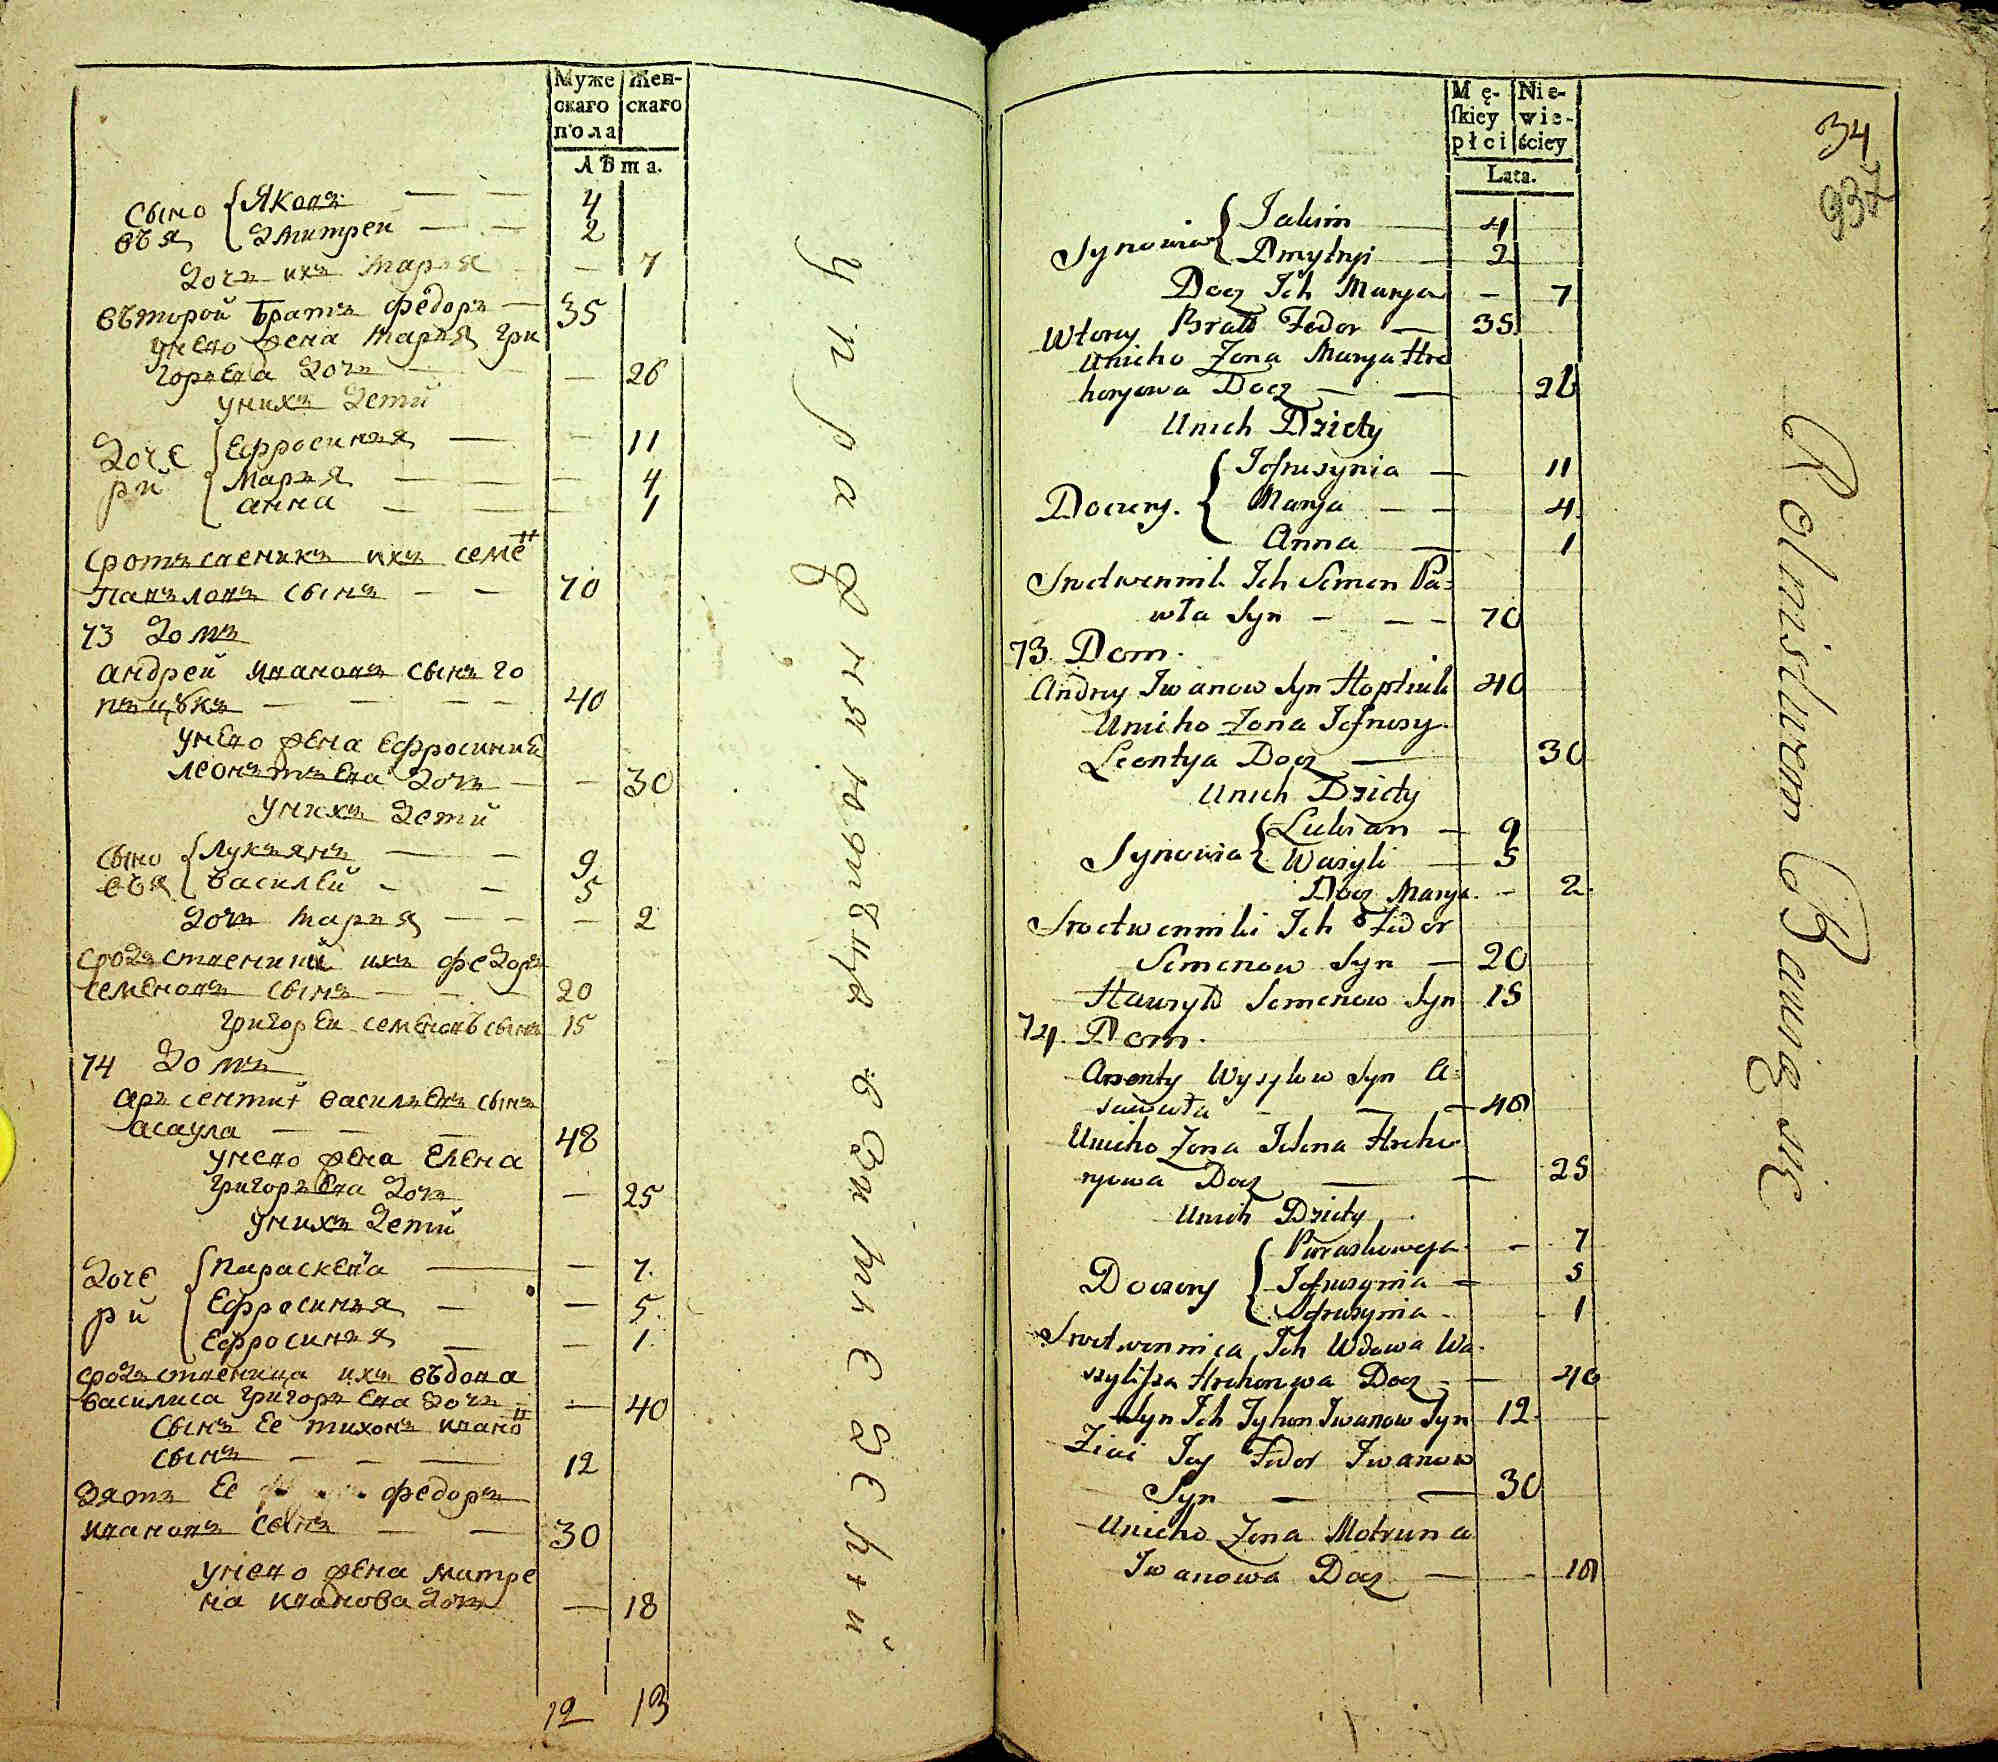 Муже Жен-
скаго скаго
пола
Лѣта.
Сыно { Яковъ — — 4
въя { Дмитрей — — 2
Дочь ихъ Марья — 7
Въторой Братъ Федоръ — 35
унего жена Марья Гри
горьева Дочь — 26
унихъ Дети
Доче { Ефросинья — — 11
ри { Марья — — — 4
анна — — — 1
Сротъсвеникъ ихъ семе н
Павъловъ Сынъ — — 70
73 Домъ
андрей ивановъ Сынъ го
пъцѣкъ — — — — 40
унего жена Ефросиния
леонътьева Дочь — — 30
Унихъ Дети
Сыно { Лукъянъ — — 9
въя { Василей — — 5
Дочь Марья — — — 2
Сродъственики ихъ Федоръ
Семеновъ Сынъ — — — 20
григорей семеновъ сынъ 15
74 Домъ
арьсентий васильевъ сынъ
асаула — — — 48
унего жена Елена
григорьева Дочь — 25
Унихъ Дети
Доче { Параскева — — 7.
ри { Ефросинья — — 5.
Ефросинья — — 1.
Сродъственица ихъ въдова
василиса григорьева дочь — 40
Сынъ Ее тихонъ ивано в
Сынъ — — — 12
Зять Ее Федоръ
ивановъ Сынъ — — 30
унего жена матре
на иванова Дочь — 18
12 13
упражняютъся в Економеской
Mę- Nie-
skiey wie-
płci ściey
Lata.
34
937
Synowie { Jakim — 4
Dmytryi — 2
Docz Ich Marya — 7
Wtory Bratt Fedor — 35
Unieho Zona Marya Hre
horyowa Docz — — 26
Unich Dziety
Doczery. { Jefrusynia — 11
Marya — — 4
Anna — 1
Srodtwennik Ich Semen Pa=
wła Syn — — — 70
73. Dom.
Andrey Iwanow Syn Hoptiuk 40
Unieho Zona Jefrusy.
Leontya Docz — 30
Unich Dziety
Synowia { Lukian — 9
Wasyli — 5
Docz Marya. — 2.
Srodtwenniki Ich Fedor
Semenow Syn — 20
Hawryło Semenow Syn 15
74. Dom.
Arsenty Wysylow Syn A=
sawuła — — — 48
Unieho Zona Jelena Hreho
ryowa Docz — — 25
Unich Dziety
Doczery { Paraskoweja — 7
Jefrusynia — 5
Jefrusynia — 1
Srodtwennica Ich Wdowa Wa
sylissa Hrehorowa Docz — — 40
Syn Ich Tyhon Iwanow Syn 12
Ziać Jey Fedor Iwanow
Syn — — 30
Unieho Zona Motruna
Iwanowa Docz — — 18
Rolnictwem Bawią się